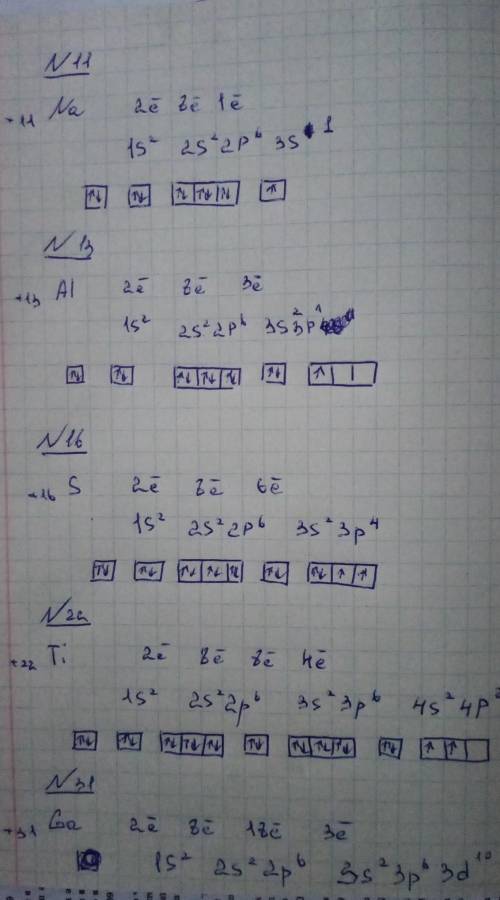 N11
+11 Na 2ē 8ē 1ē
1s² 2s² 2p⁶ 3s 1
↑↓ ↑↓ ↑↓ ↑↓ ↑↓ ↑
N13
+13 Al 2ē 8ē 3ē
1s² 2s² 2p⁶ 3s² 3p¹
↑↓ ↑↓ ↑↓ ↑↓ ↑↓ ↑↓ ↑
N16
+16 S 2ē 8ē 6ē
1s² 2s² 2p⁶ 3s² 3p⁴
↑↓ ↑↓ ↑↓ ↑↓ ↑↓ ↑↓ ↑↓ ↑ ↑
N22
+22 Ti 2ē 8ē 8ē 4ē
1s² 2s² 2p⁶ 3s² 3p⁶ 4s² 4p²
↑↓ ↑↓ ↑↓ ↑↓ ↑↓ ↑↓ ↑↓ ↑↓ ↑↓ ↑↓ ↑ ↑
N31
+31 Ga 2ē 8ē 18ē 3ē
1s² 2s² 2p⁶ 3s² 3p⁶ 3d¹⁰